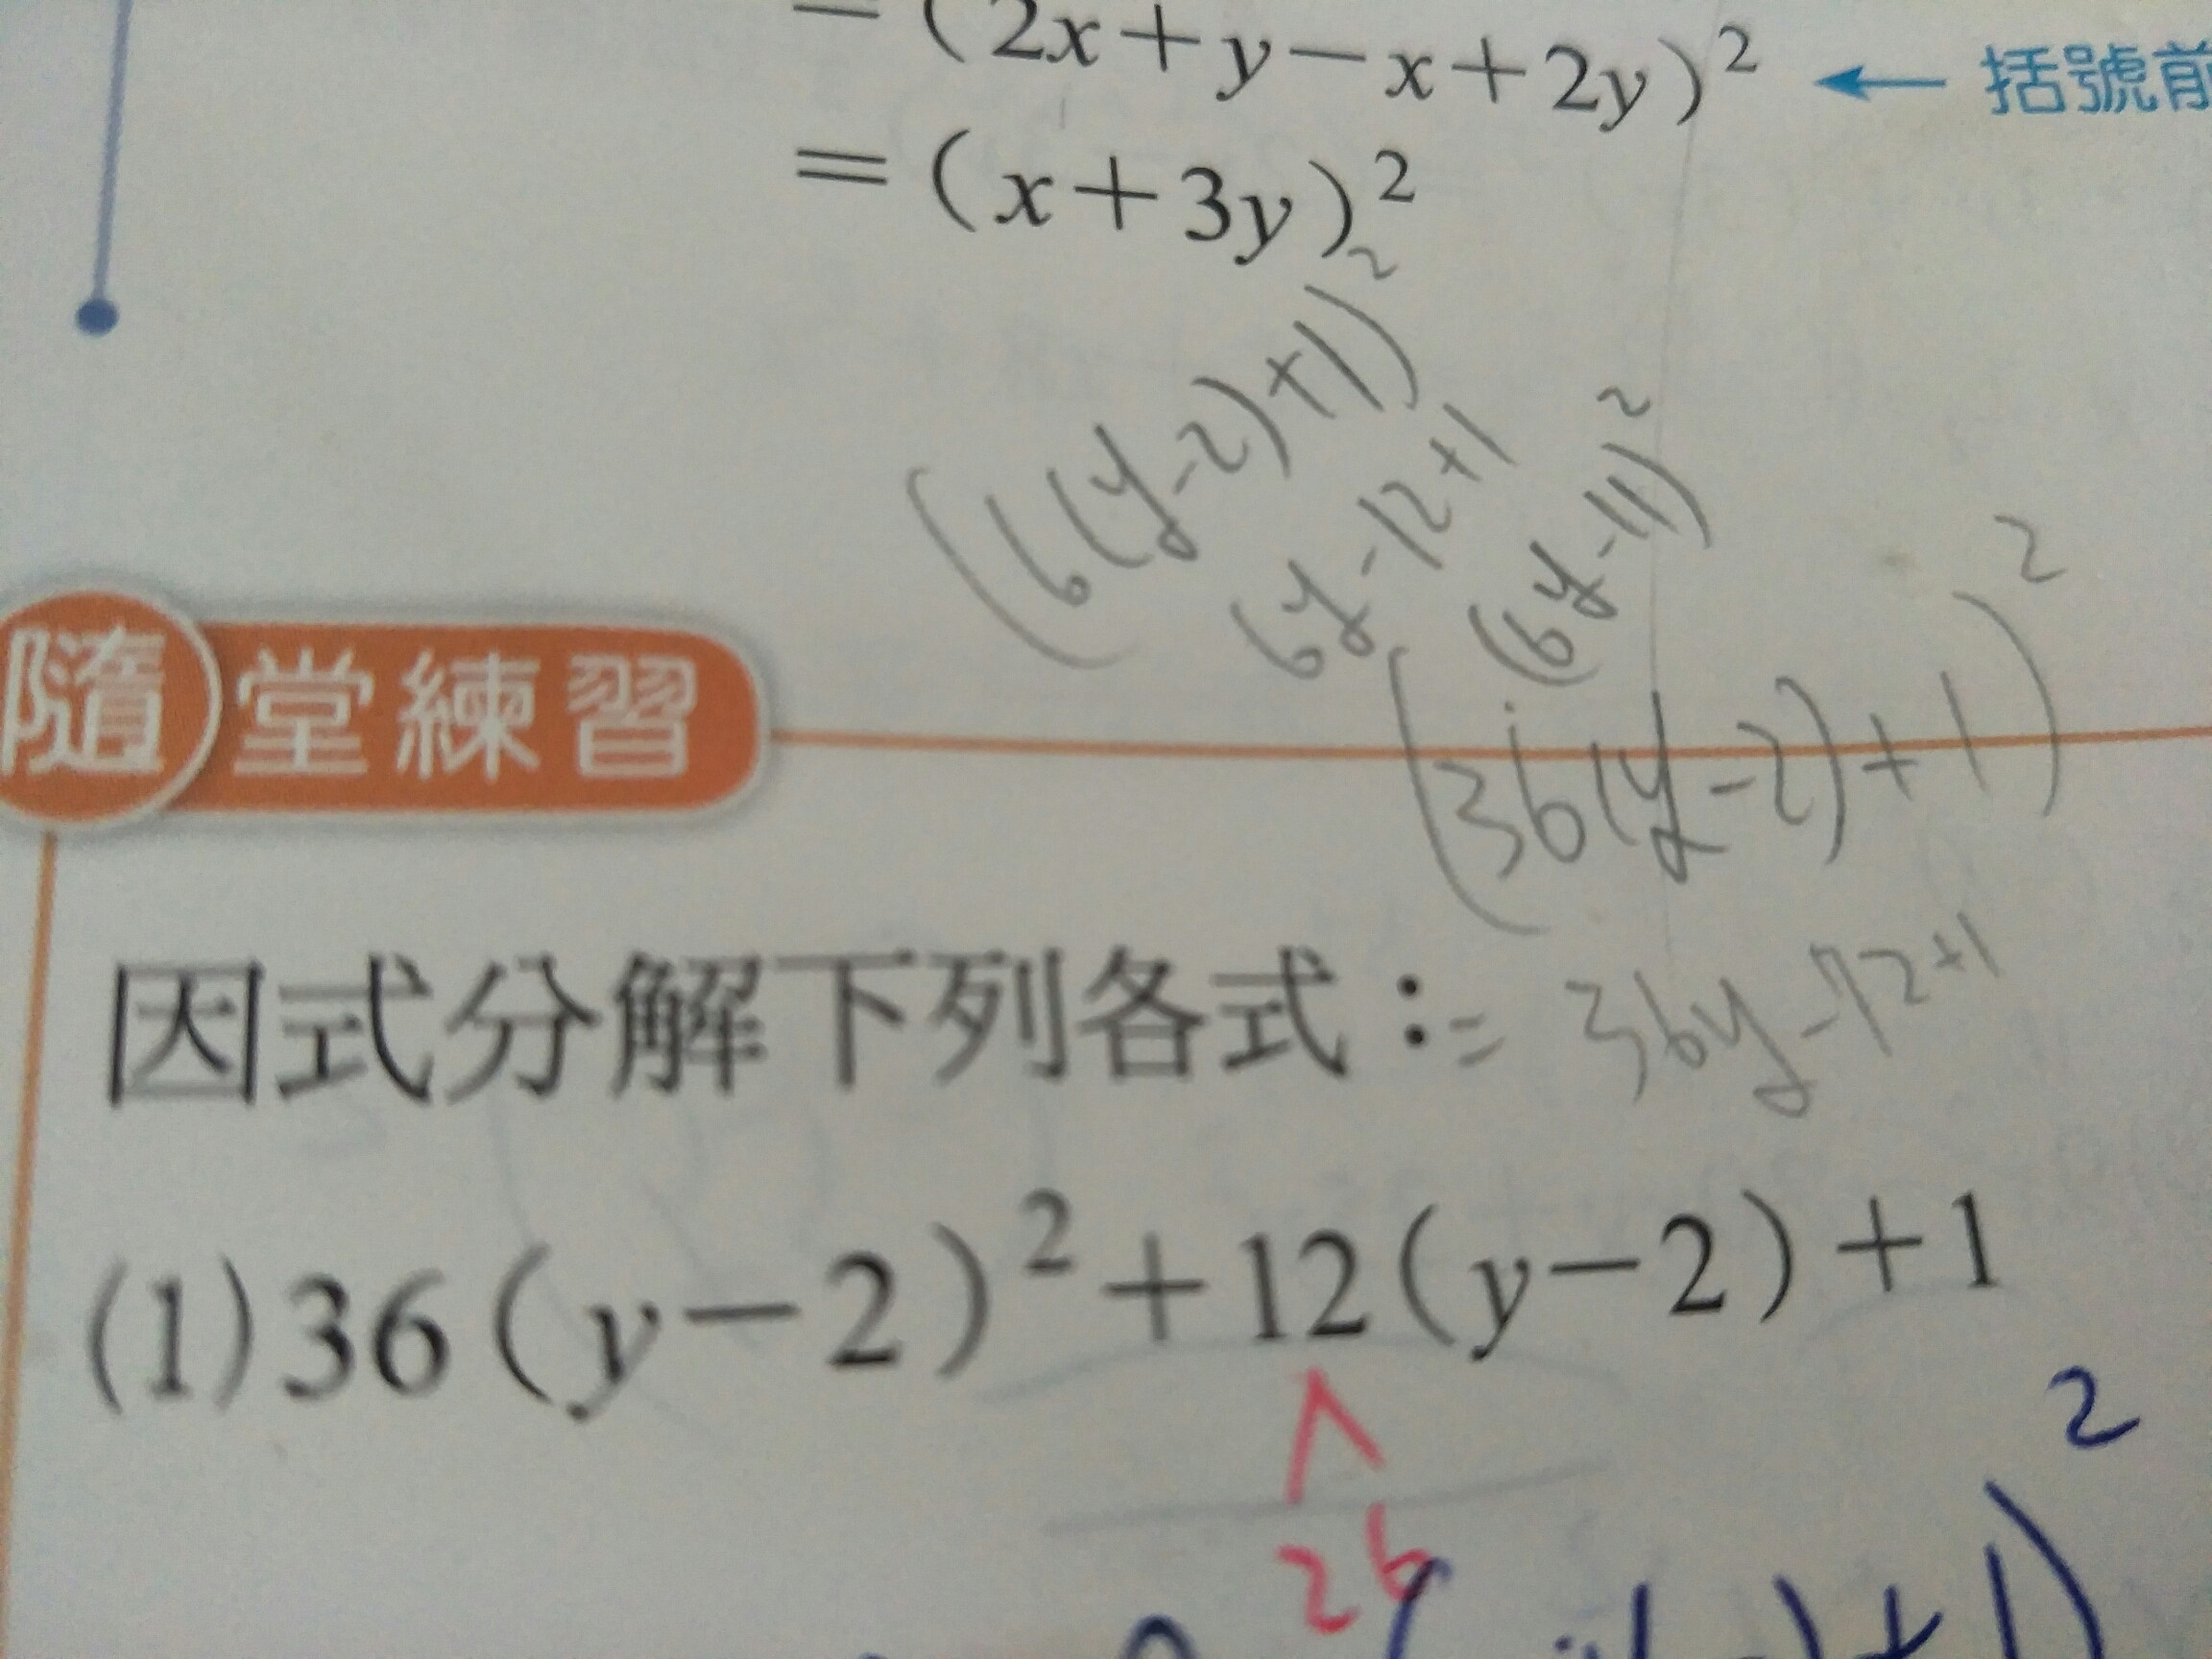 =(2x+y-x+2y)² ← 括號前
=(x+3y)²
(6(y-2)+1)²
6y-12+1
(6y-11)²
(36(y-2)+1)²
隨堂練習
因式分解下列各式：= 36y-72+1
(1)36(y-2)²+12(y-2)+1
2 6
+1)²